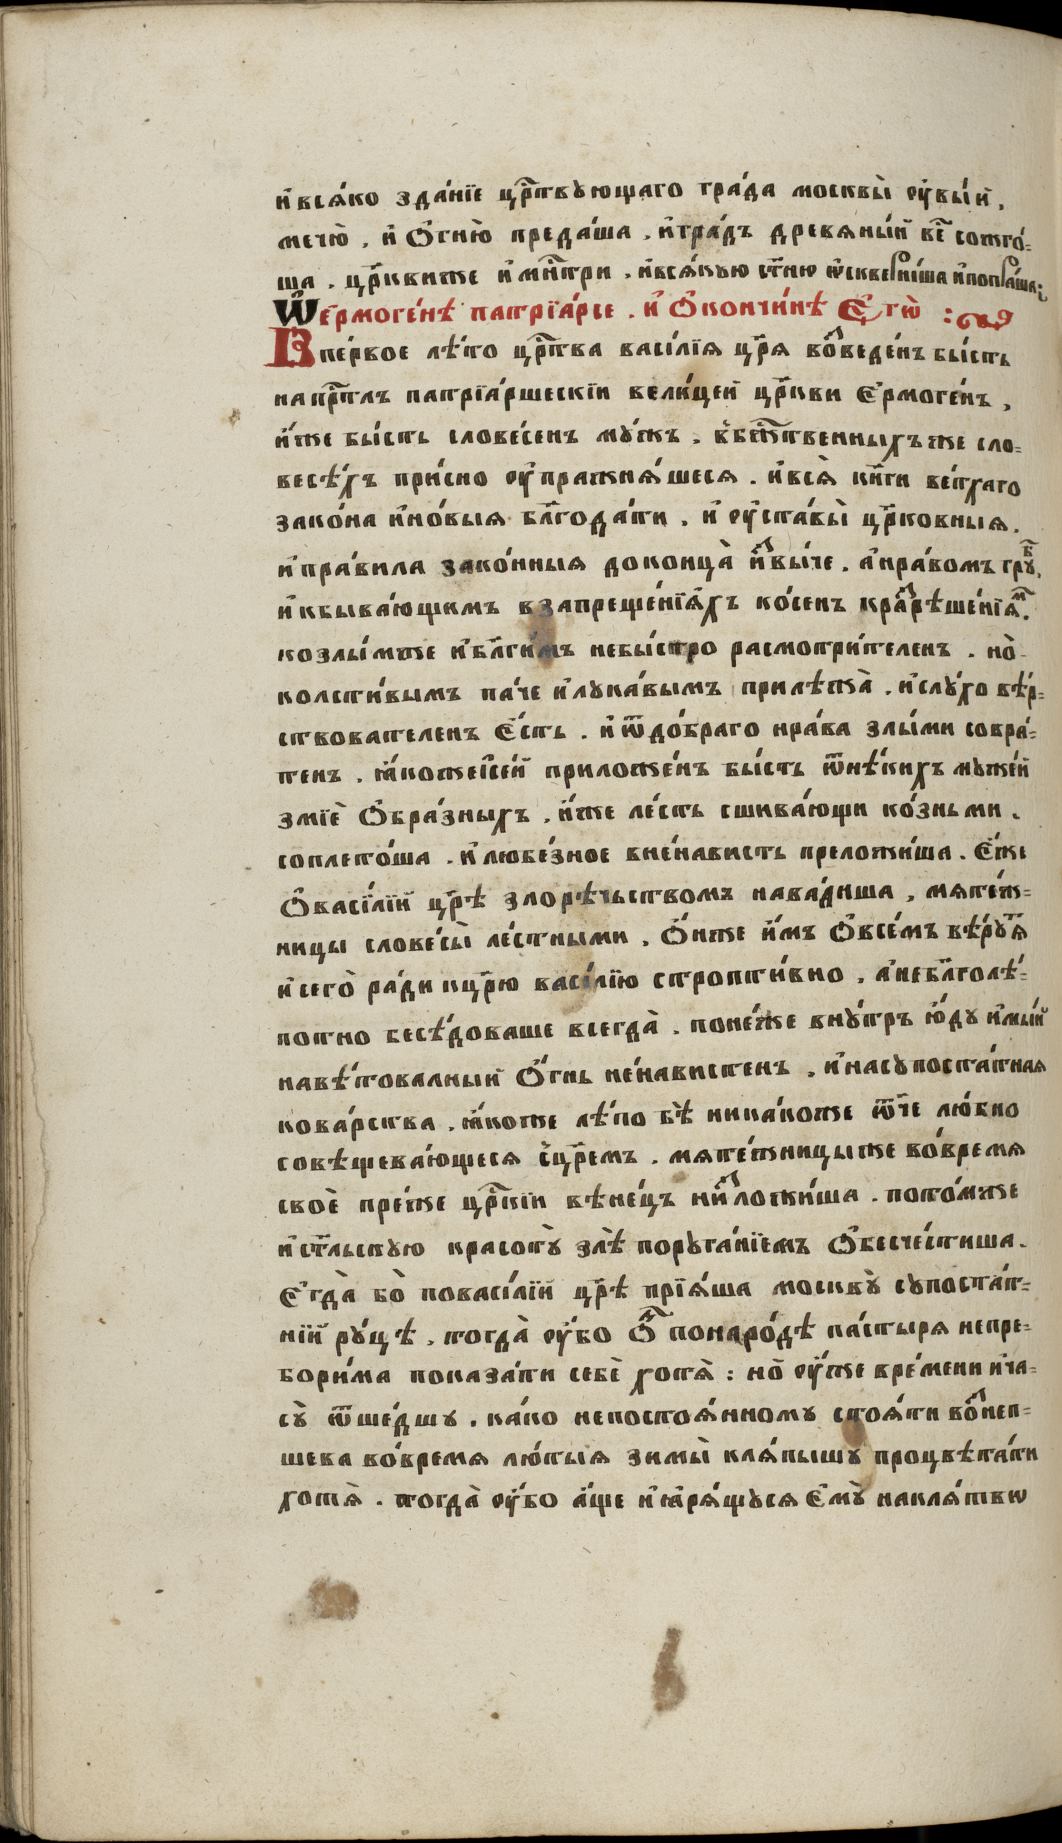 и҆всѧ́ко зда́нїе цр҃твꙋющаго гра́да москвы̀ ᲂу҆бы́й,
мечю̀, и҆ ѻ҆гню̀ преда́ша, и҆гра́дъ древѧны́й ве́с сожго́-
ша, цр҃квиже и҆мн҃три, и҆всѧ́кꙋю ст҃ню ѡ҆скверни́ша и҆попра́ша:
Ѡ҆е҆рмоге́нѣ патрїа́рсе, и҆ ѻ҆кончи́нѣ є҆гѡ̀ :
Впе́рвое лѣ́то цр҃тва васи́лїѧ цр҃ѧ возведе́нъ бы́сть
напр҃тлъ патрїа́ршескїи вели́цей цр҃кви є҆рмоге́нъ,
и҆́же бы́сть слове́сенъ мꙋ́жъ, вбж҃твенныхъже сло-
весѣ́хъ при́сно ᲂу҆пражнѧ́шесѧ, и҆всѧ̀ кн҃ги ве́тхаго
зако́на и҆но́выѧ бл҃года́ти, и҆ ᲂу҆ста́вы̀ цр҃ковныѧ,
и҆пра́вила зако́нныѧ доконца̀ и҆звы́че, а҆нра́вомъ грꙋ́б,
и҆кбыва́ющимъ взапреще́нїѧхъ ко́сенъ кразрѣше́нїѧм.
козлы́мже и҆бл҃ги́мъ небы́стро расмотри́теленъ, но̀
колсти́вымъ па́че и҆лꙋка́вымъ прилѣжа̀, и҆слꙋ́хо вѣ́р-
ствователенъ є҆́сть, и҆ѿдо́браго нра́ва злы́ми совра́-
тенъ, ꙗ҆́кожесе́й приложе́нъ бы́сть ѿнѣ́кихъ мꙋже́й
змїѐ ѻ҆бра́зныхъ, и҆́же ле́сть сшива́ющи ко́зньми,
соплето́ша, и҆любе́зное внена́висть преложи́ша. є҆́же
ѻ҆васи́лїй цр҃ѣ злорѣ́чьствомъ нава́диша, мѧте́ж-
ницы словесы̀ ле́стными, ѻ҆́нже и҆́мъ ѻ҆все́мъ вѣ́рꙋѧ
и҆сего̀ ра́ди кцр҃ю васи́лїю стропти́вно, а҆небл҃голѣ́-
потно бесѣ́доваше всегда̀, поне́же внꙋ́трь ю҆́дꙋ и҆мы́й
навѣ́товалный ѻ҆́гнь не́навистенъ, и҆насꙋпоста́тная
кова́рства, ꙗ҆́коже лѣ́по бѣ̀ ника́коже ѻ҆ч҃е лю́бно
совѣщева́ющесѧ сцр҃емъ, мѧте́жницыже во́времѧ
своѐ пре́же цр҃кїи вѣне́цъ низложи́ша, пото́мже
и҆ст҃льскꙋю красотꙋ̀ злѣ̀ порꙋга́нїемъ ѻ҆бесче́стиша.
є҆гда̀ бо̀ повасилїй цр҃ѣ прїѧ́ша москвꙋ̀ сꙋпоста́т-
нїй рꙋ́цѣ, тогда̀ ᲂу҆́бо ѻ҆н понаро́дѣ па́стырѧ непре-
бори́ма показа́ти себѐ хотѧ̀ : но̀ ᲂу҆́же вре́мени и҆ча-
сꙋ̀ ѿше́дшꙋ, ка́ко непостоѧ́нномꙋ стоѧ́ти вознеп-
щева во́времѧ лю́тыѧ зимы̀ клѧ́пышꙋ процвѣта́ти
хотѧ̀. тогда̀ ᲂу҆́бо а҆́ще и҆ꙗ҆рѧ́щꙋсѧ є҆мꙋ̀ наклѧ́твѡ